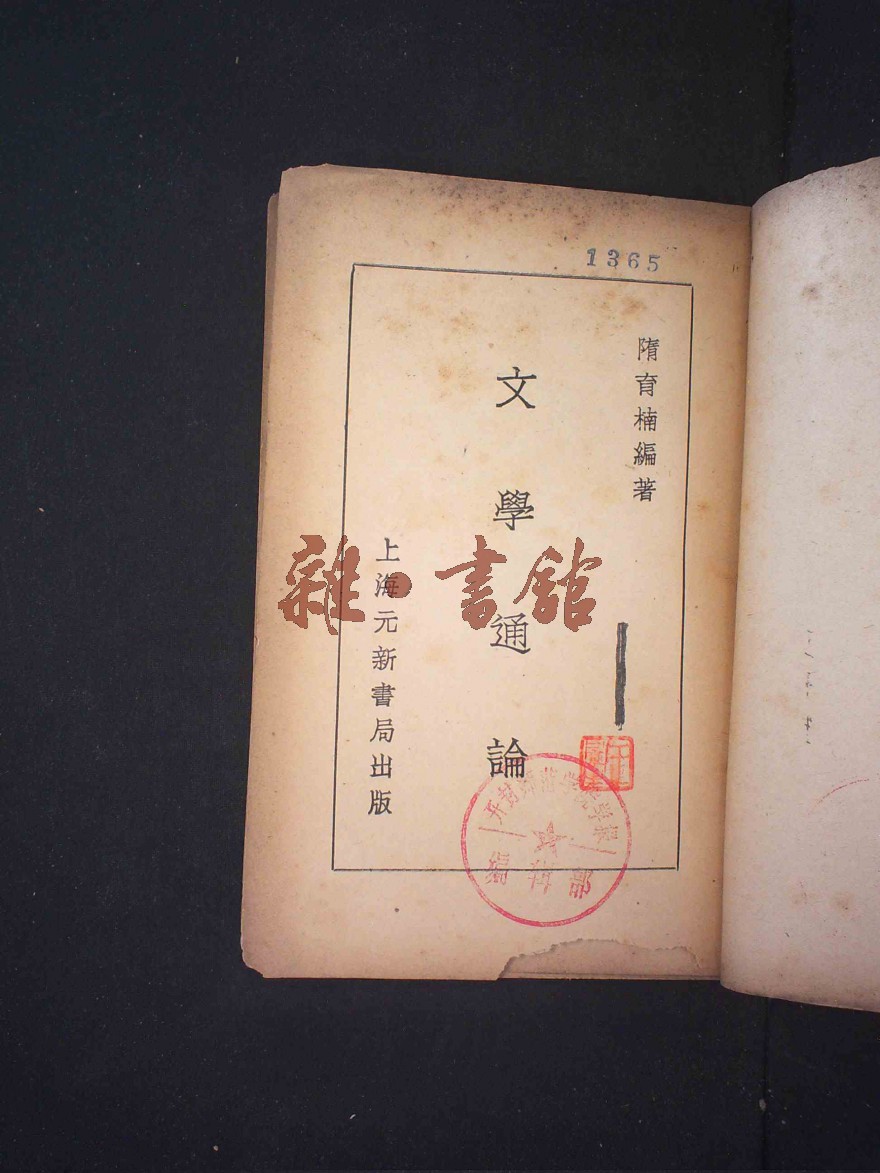 1365
隋育楠編著
文學通論
上海元新書局出版
雜·書館
开封师范学院学报
编辑部